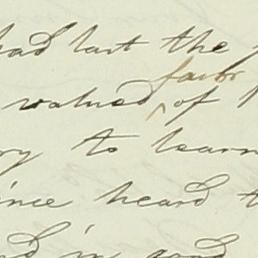 had last the
favor
valued ^ of
ry to learn
ince heard t
in good